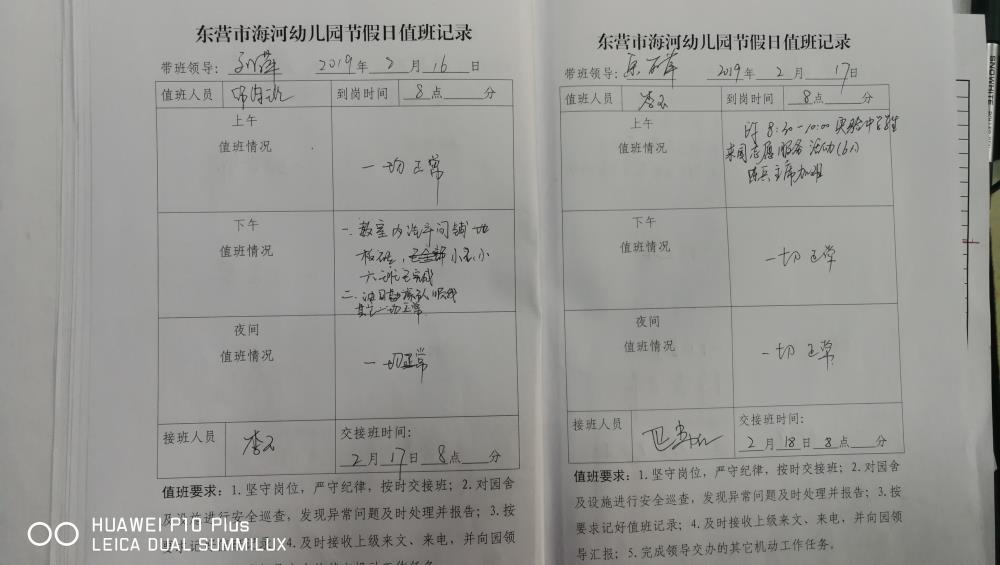 东营市海河幼儿园节假日值班记录
带班领导: 2019年2月16日
值班人员 到岗时间 8点 分
上午
值班情况
一切正常
下午
值班情况
一.教室内 铺地
小
六 已完成
二.
其它一切正常
夜间
值班情况
一切正常
接班人员 李玉 交接班时间:
2月17日8点 分
值班要求: 1.坚守岗位, 严守纪律, 按时交接班; 2.对园舍
及设施进行安全巡查, 发现异常问题及时处理并报告; 3.按
4.及时接收上级来文、来电, 并向园领
东营市海河幼儿园节假日值班记录
带班领导: 2019年2月17日
值班人员 李玉 到岗时间 8点 分
上午
值班情况
8:30-10:00 实验中学学生
来园志愿服务活动(6人)
主席加班
下午
值班情况
一切正常
夜间
值班情况
一切正常
接班人员 交接班时间:
2月18日8点 分
值班要求: 1.坚守岗位, 严守纪律, 按时交接班; 2.对园舍
及设施进行安全巡查, 发现异常问题及时处理并报告; 3.按
要求记好值班记录; 4.及时接收上级来文、来电, 并向园领
导汇报; 5.完成领导交办的其它机动工作任务。
SNOWHITE
HUAWEI P10 Plus
LEICA DUAL SUMMILUX